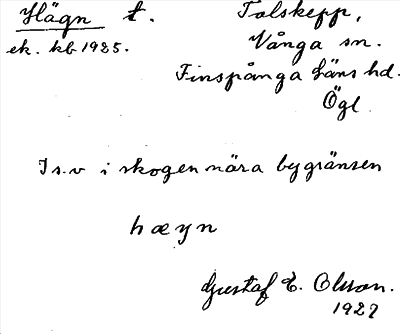 Hägn t. Tolskepp,
ek. kb 1925. Vånga sn.
Finspånga läns hd.
Ögl.
I s.v i skogen nära bygränsen
hæyn
Gustaf E. Olsson.
1927